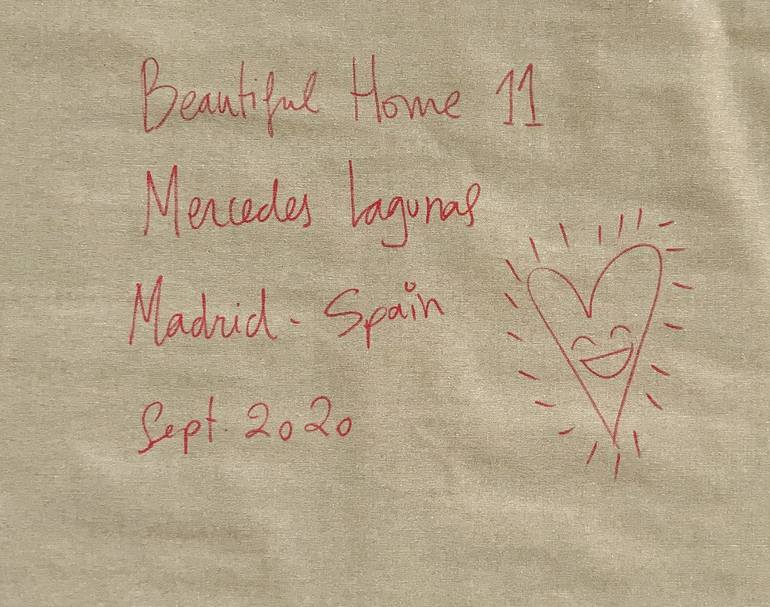 Beautiful Home 11
Mercedes Lagunas
Madrid - Spain
Sept. 2020